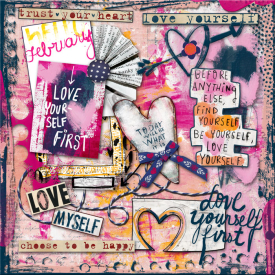 trust your heart
love yourself
hello
february
LOVE
YOUR
SELF
FIRST
BEFORE
ANYTHING
ELSE,
FIND
YOURSELF,
BE YOURSELF,
LOVE
YOURSELF.
TODAY
WHAT
LOVE
MYSELF
love
yourself
first
choose to be happy